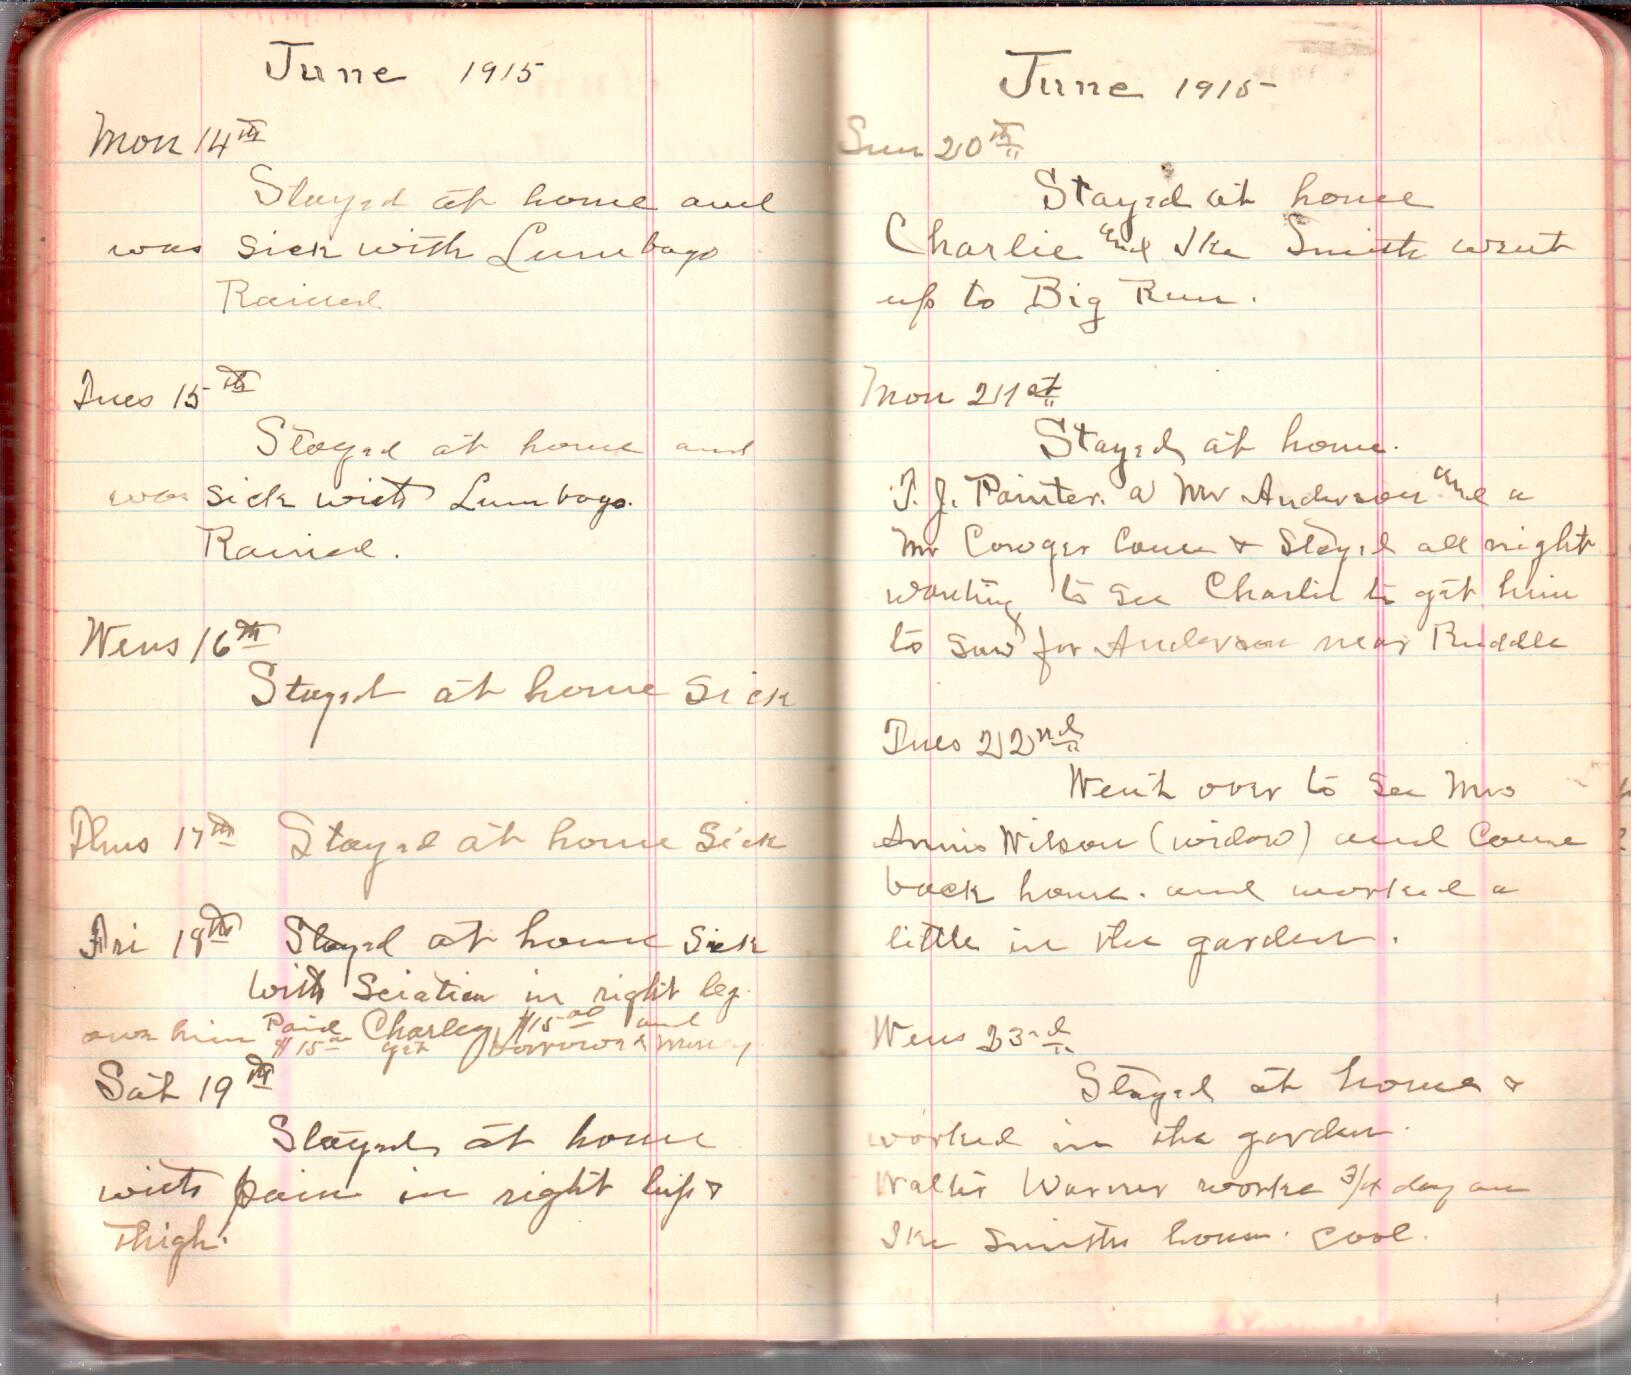 June 1915
Mon 14th
Stayed at home and
was sick with Lumbago
Rained
Tues 15th
Stayed at home and
was sick with Lumbago.
Rained.
Wens 16th
Stayed at home sick
Thus 17th Stayed at home sick
Fri 18th Stayed at home sick
with Sciatica in right leg.
Paid Charley $15.00 and
owe him $15.00 yet borrowed money
Sat 19th
Stayed at home
with pain in right hip &
Thigh.
June 1915
Sun 20th
Stayed at home
Charlie and Ike Smith went
up to Big Run.
Mon 21st
Stayed at home.
T. J. Painter. a Mr Anderson and a
Mr Cowger Come & Stayed all night
wanting to see Charlie to get him
to saw for Anderson near Ruddle
Tues 22nd
Went over to see Mrs
Annis Wilson (widow) and Come
back home. and worked a
little in the garden.
Wens 23rd
Stayed at home &
worked in the garden.
Walter Warner worke 3/4 day on
Ike Smiths house. Cool.